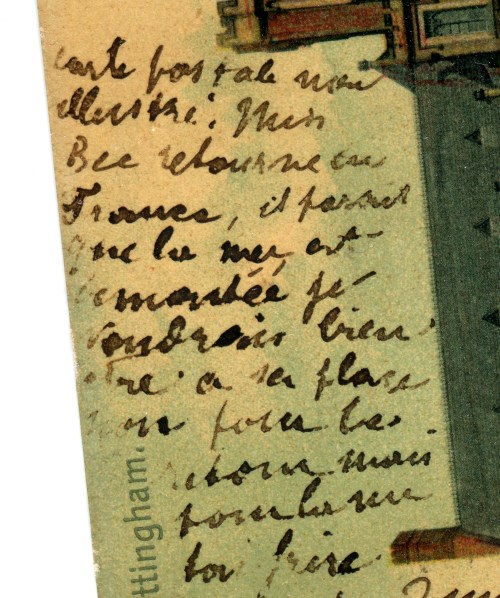 carte postale non
illustré. Miss
Bee retourne en
France, il parait
que la mer est
démontée je
voudrais bien
être a sa place
non pour le
retour mais
pour la mer
ton frère
ttingham.